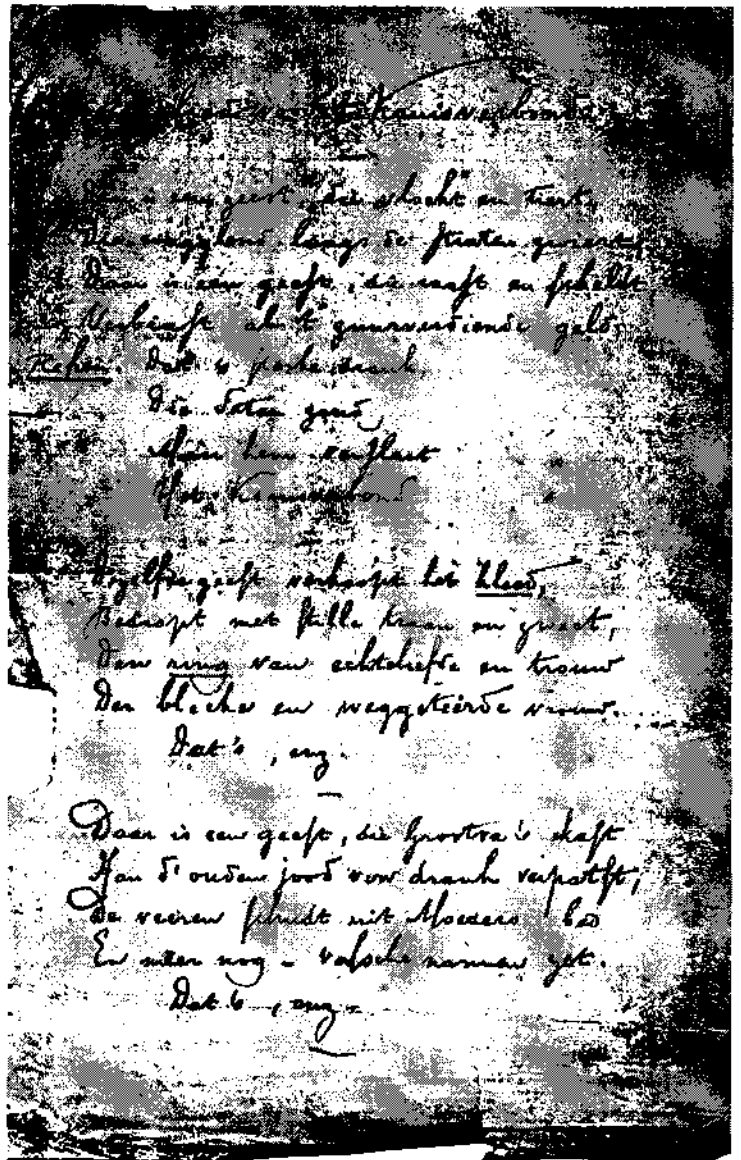 Lied van het Kruisverbond
Daar is een geest, die vloekt en tiert,
Die langs de straten zwiert,
Daar is een geest, die raast en scheldt
Verbrast al 't zuurverdiende geld.
Refrein. Dat 's sterke drank,
Die Satan zond,
Aan hem
Het Kruisverbond

Dezelfde geest verkoopt het kleed,
Bedropt met stille traan en zweet,
Den ring van echteliefde en trouw
Der bleeke en weggeteerde vrouw.
Dat 's, enz.

Daar is een geest, die Grootva's
Aan d' ouden jood voor drank verpatst,
De veeren schudt uit Moeders bed
En meer nog – valsche namen zet.
Dat 's, enz.